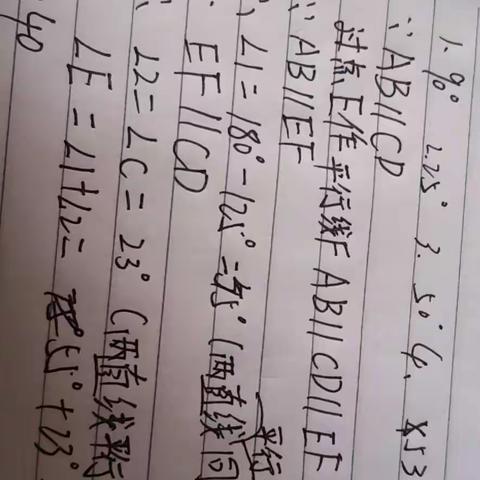 1. 90° 2.25° 3. 50° 4. 53
∵ AB∥CD
过点E作平行线F AB∥CD∥EF
∵ AB∥EF
∠1=180°-125°=55°(两直线平行 同
EF∥CD
∠2=∠C=23°(两直线平行
∠E=∠1+∠2=55°+23°
40